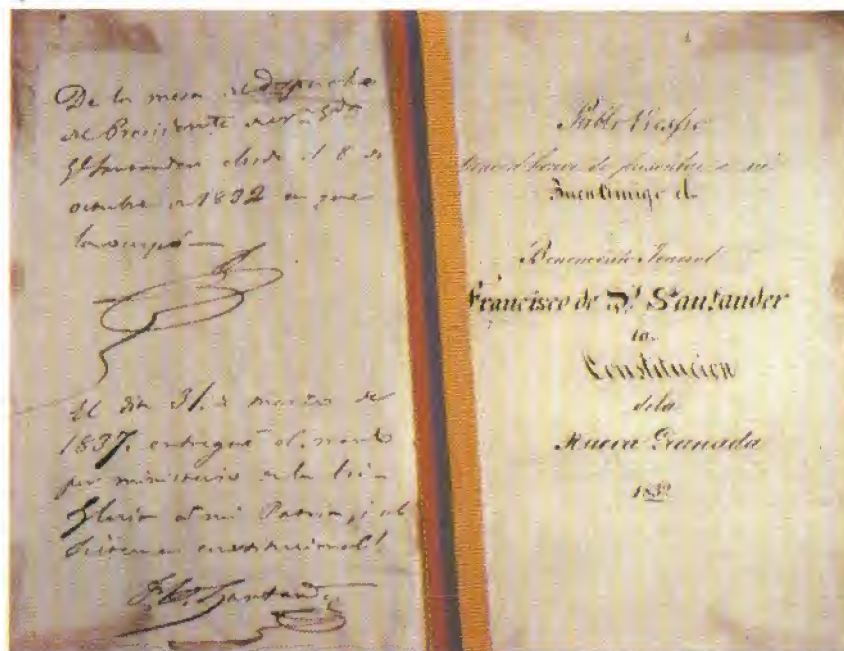 De la mesa de despacho
del Presidente de la
Gl Santander desde el 8 de
octubre de 1832 en que
la ocupó
El día 31. de marzo de
1837. entregué el mando
por ministerio de la lei
Gloria a mi Patria, i al
sistema constitucional!
F. de P. Santander
Pablo Crespo
tiene el honor de presentar a su
Buen Amigo el
Benemérito Jeneral
Francisco de P. Santander
la
Constitucion
de la
Nueva Granada
1832